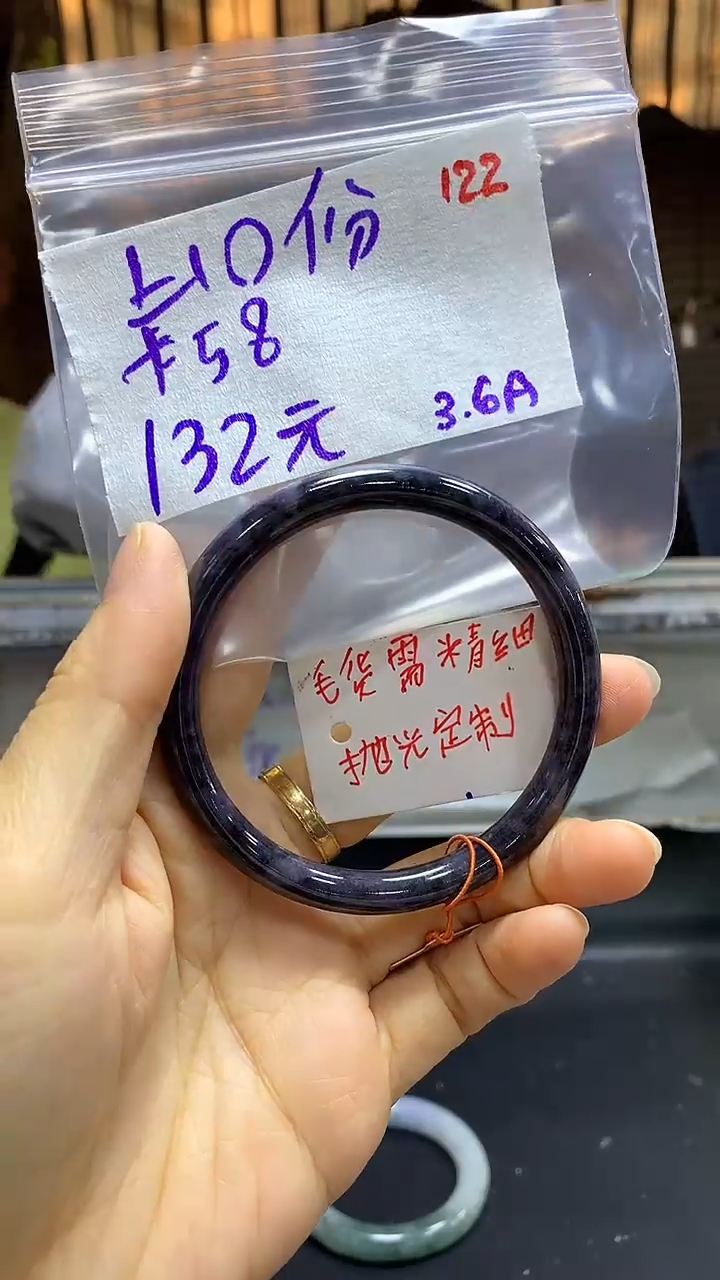 上10份
122
卡58
132元
3.6A
毛货需精细
抛光定制